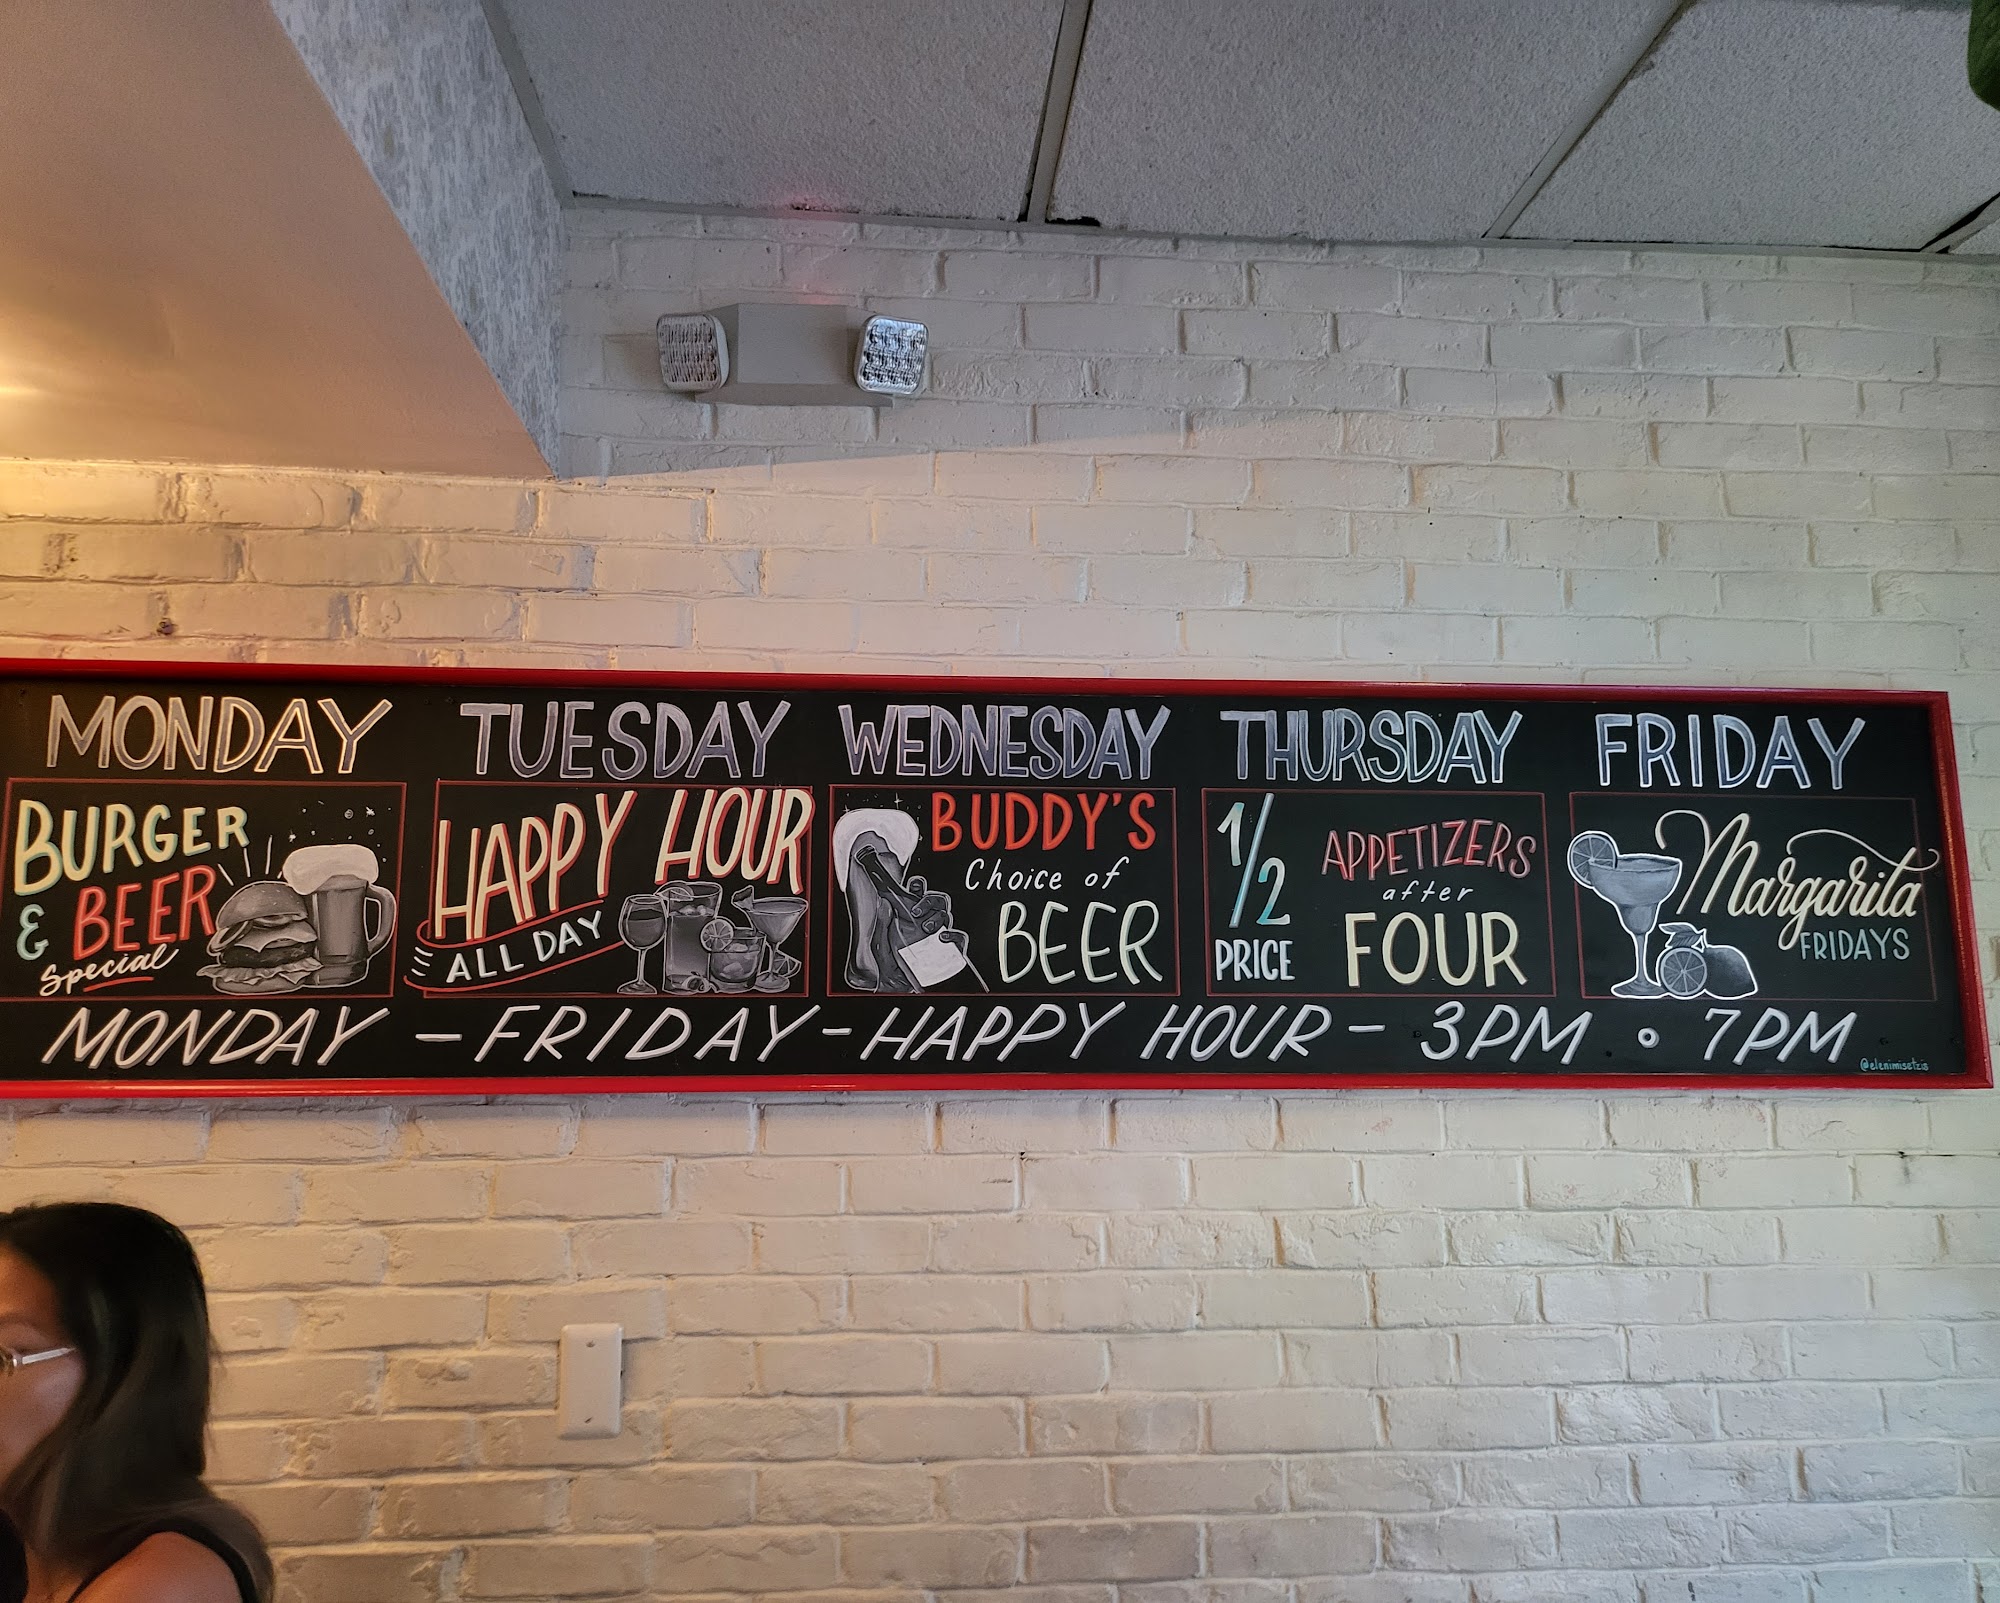 MONDAY
BURGER
& BEER
Special
TUESDAY
HAPPY HOUR
ALL DAY
WEDNESDAY
BUDDY'S
Choice of
BEER
THURSDAY
1/2
PRICE
APPETIZERS
after
FOUR
FRIDAY
Margarita
FRIDAYS
MONDAY – FRIDAY – HAPPY HOUR – 3PM • 7PM
@elenimisetzis